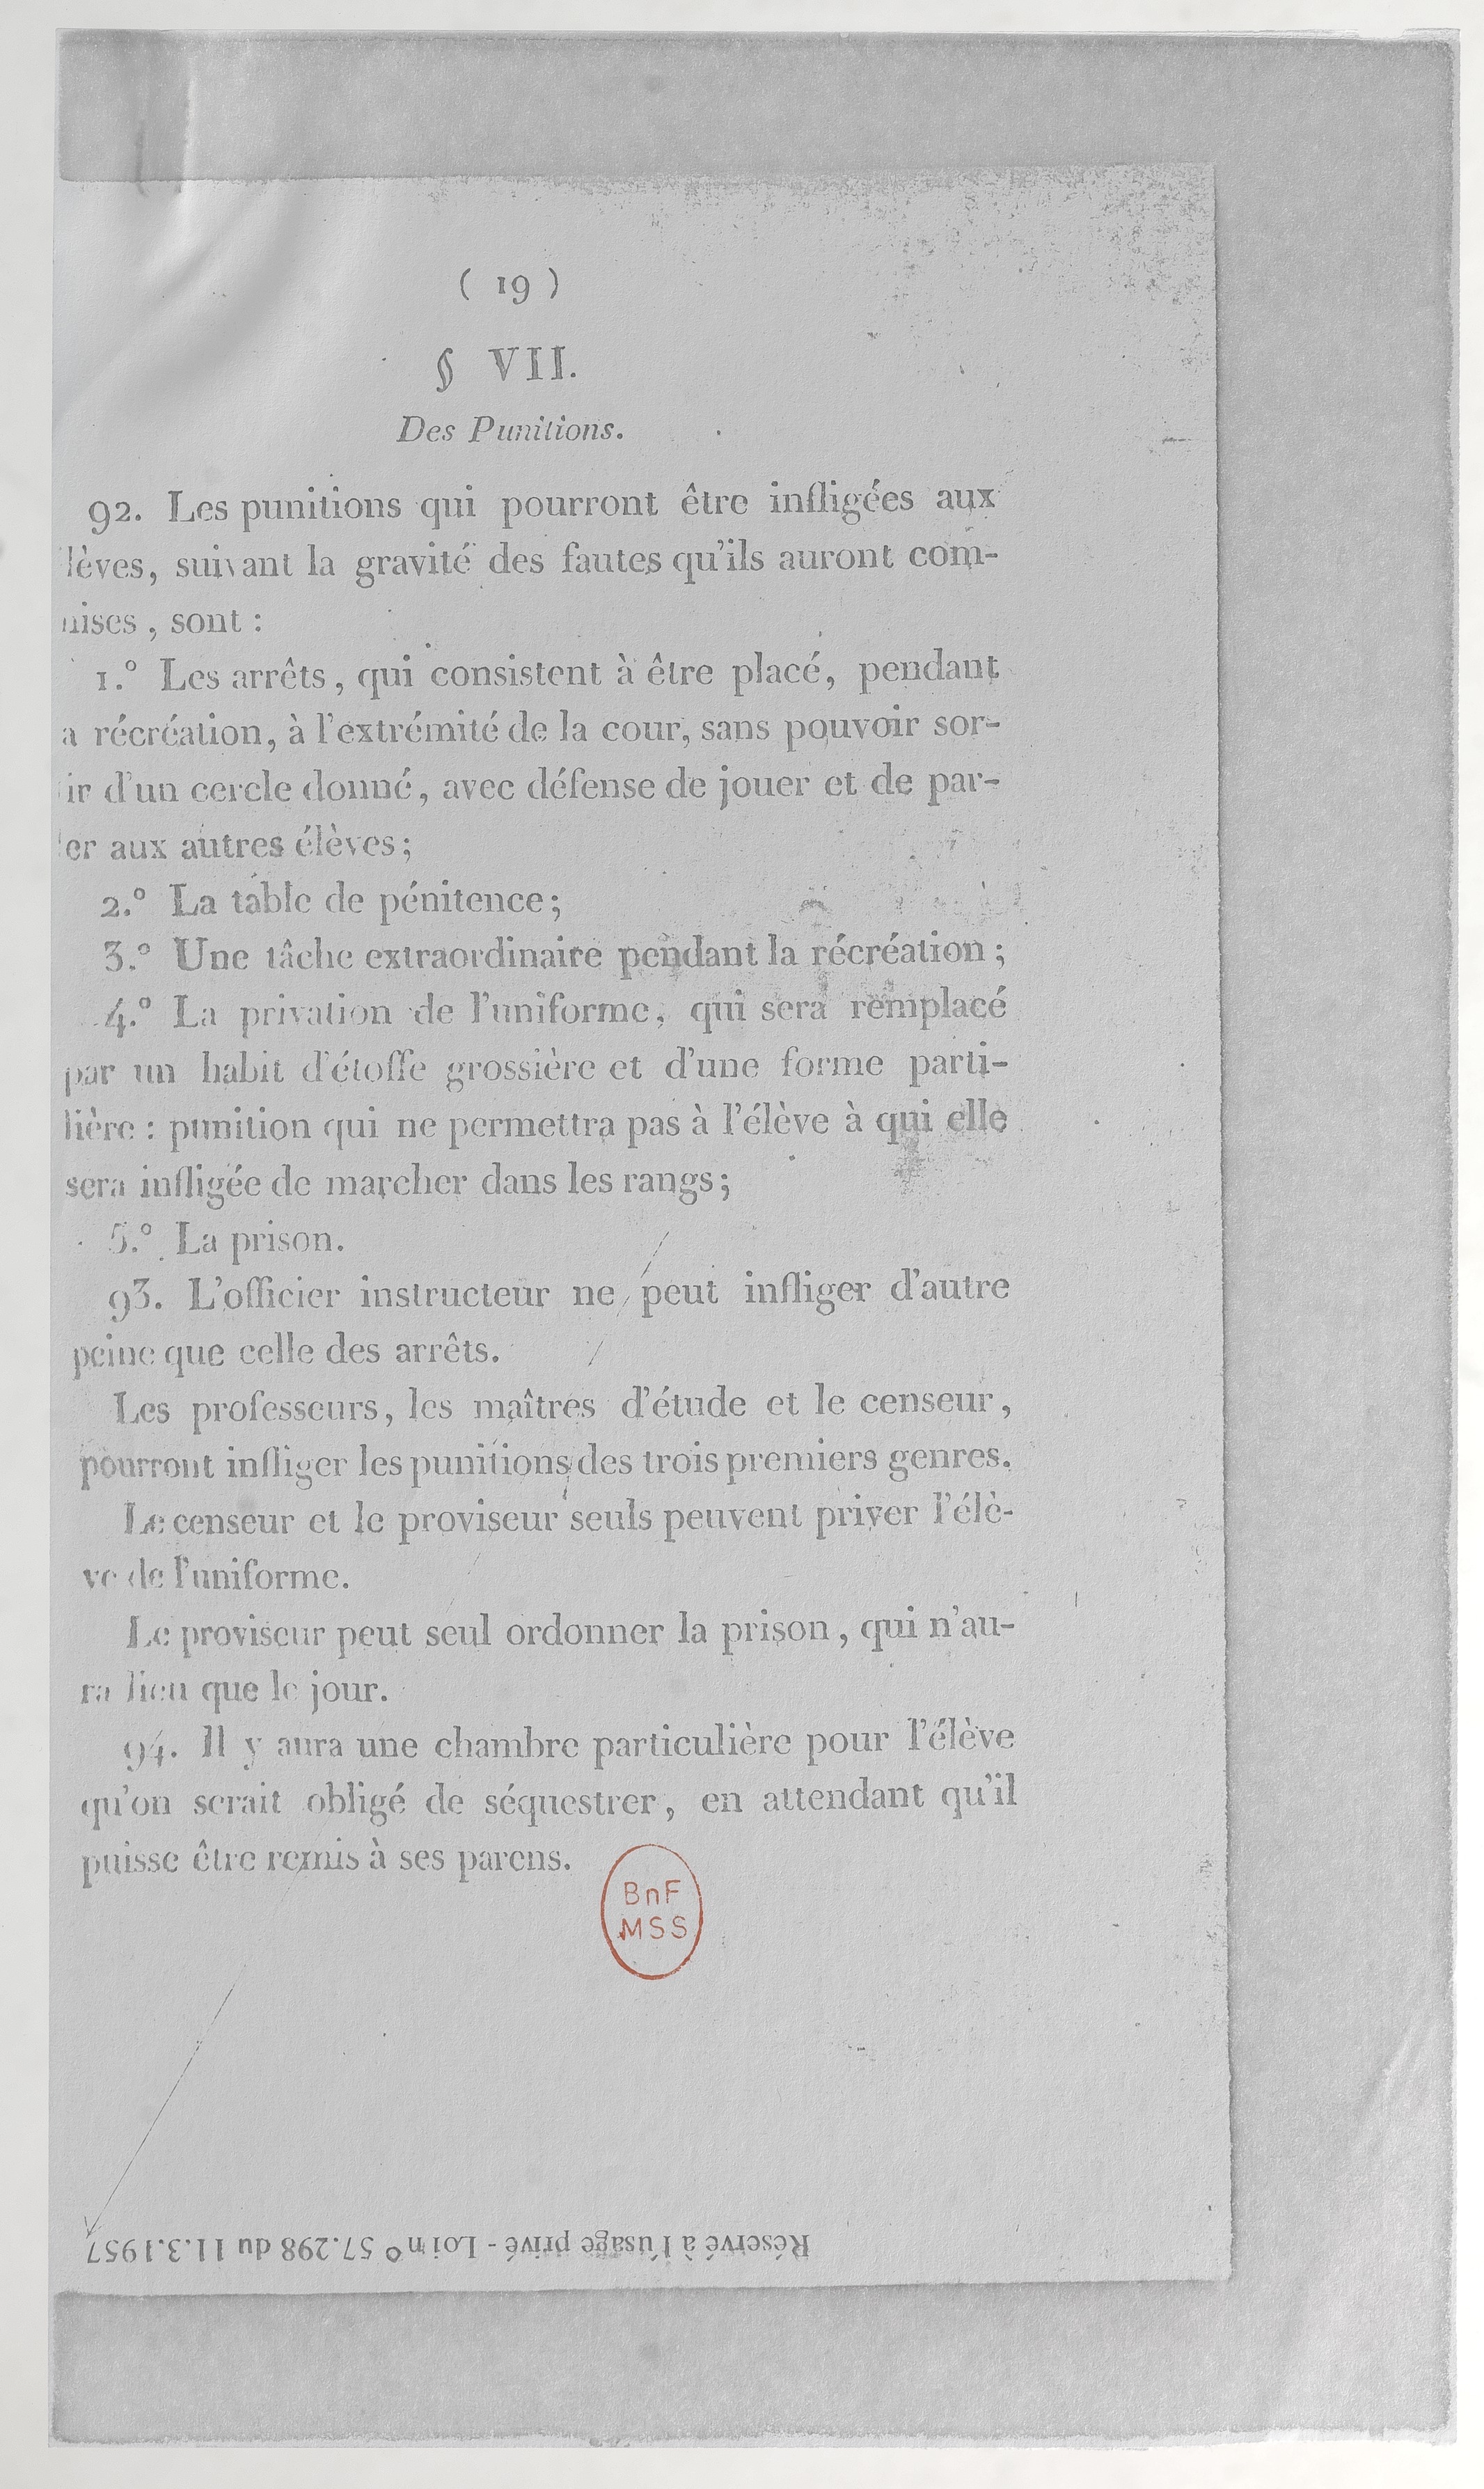 ( 19 )
§ VII.
Des Punitions.
92. Les punitions qui pourront être infligées aux
lèves, suivant la gravité des fautes qu'ils auront com-
mises, sont :
1.° Les arrêts, qui consistent à être placé, pendant
a récréation, à l'extrémité de la cour, sans pouvoir sor-
ir d'un cercle donné, avec défense de jouer et de par-
er aux autres élèves;
2.° La table de pénitence;
3.° Une tâche extraordinaire pendant la récréation;
4.° La privation de l'uniforme, qui sera remplacé
par un habit d'étoffe grossière et d'une forme parti-
lière : punition qui ne permettra pas à l'élève à qui elle
sera infligée de marcher dans les rangs;
5.° La prison.
93. L'officier instructeur ne peut infliger d'autre
peine que celle des arrêts.
Les professeurs, les maîtres d'étude et le censeur,
pourront infliger les punitions des trois premiers genres.
Le censeur et le proviseur seuls peuvent priver l'élè-
ve de l'uniforme.
Le proviseur peut seul ordonner la prison, qui n'au-
ra lieu que le jour.
94. Il y aura une chambre particulière pour l'élève
qu'on serait obligé de séquestrer, en attendant qu'il
puisse être remis à ses parens.
BnF
MSS
Réservé à l'usage privé - Loi n° 57.298 du 11.3.1957